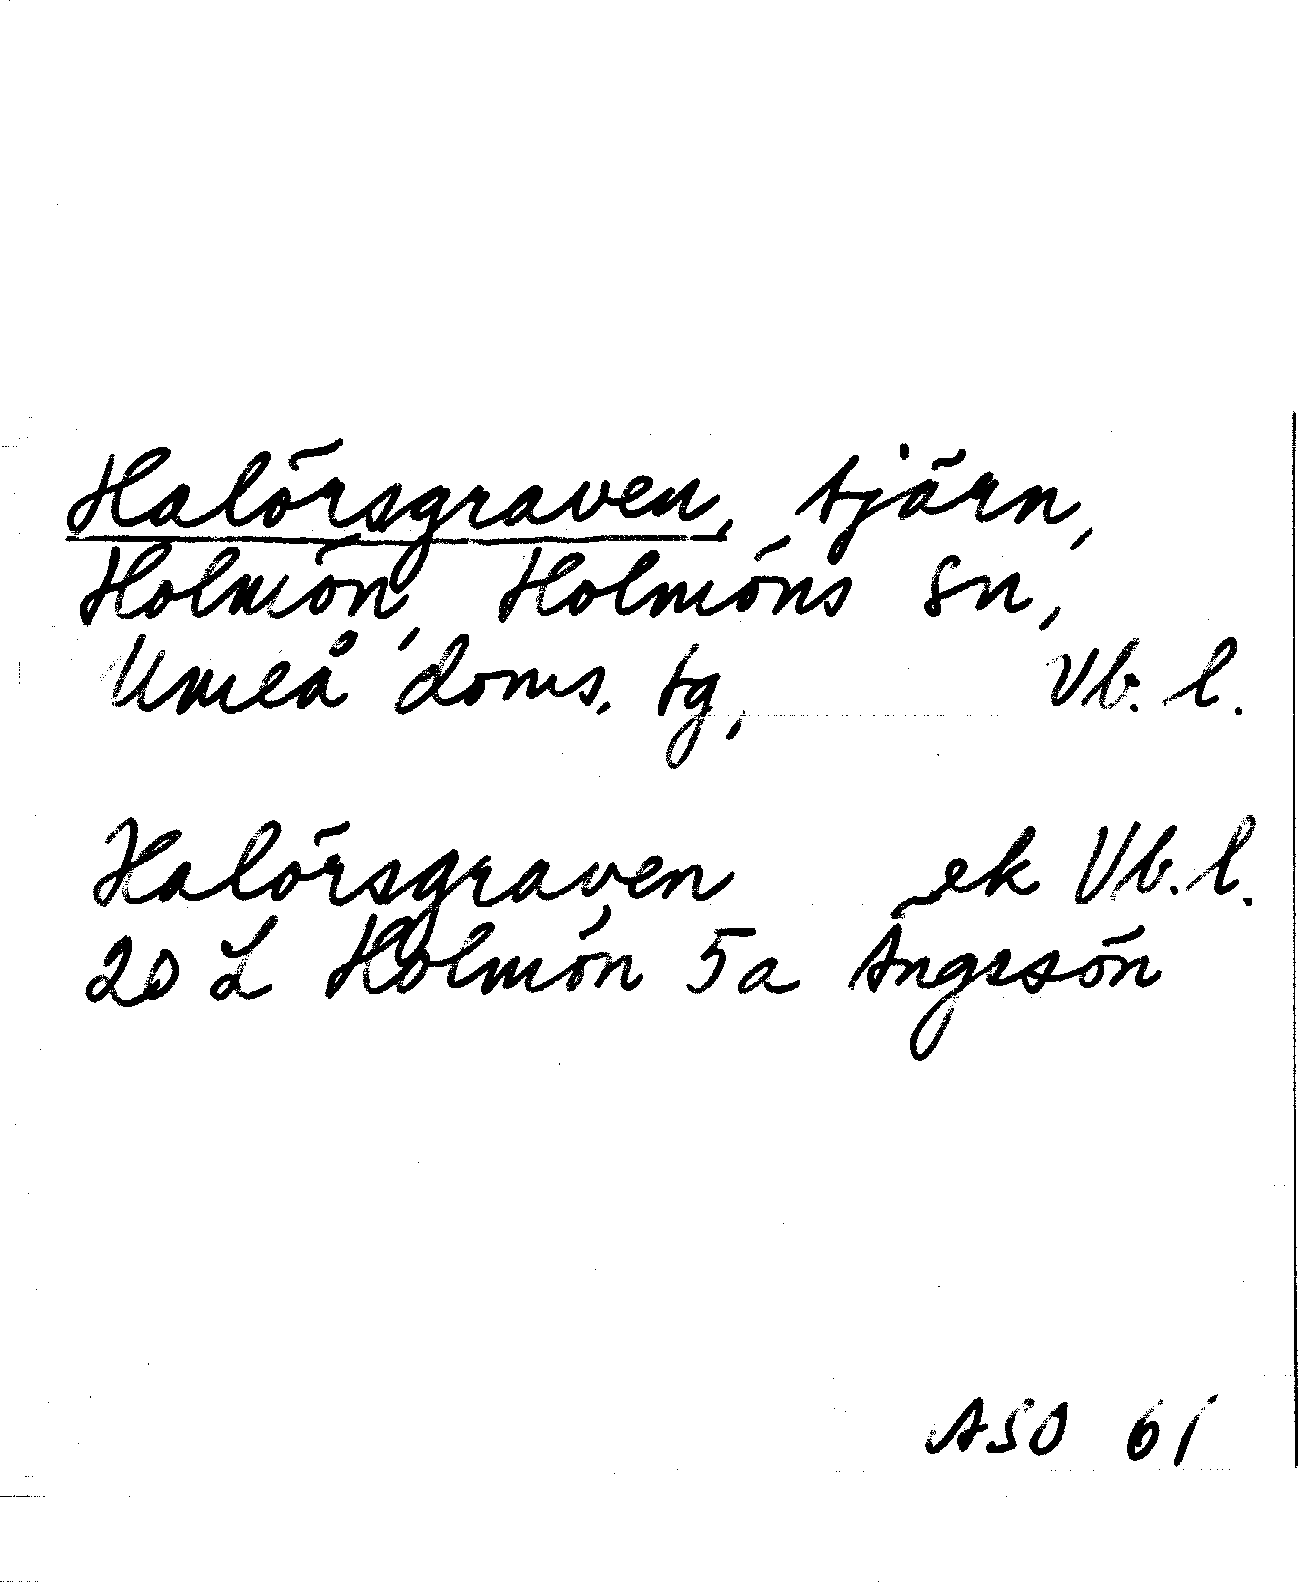 Halörsgraven, tjärn,
Holmön, Holmöns sn,
Umeå doms. tg, Vb. l.
Halörsgraven ek Vb. l.
20 L Holmön 5a Ängesön
ASO 61